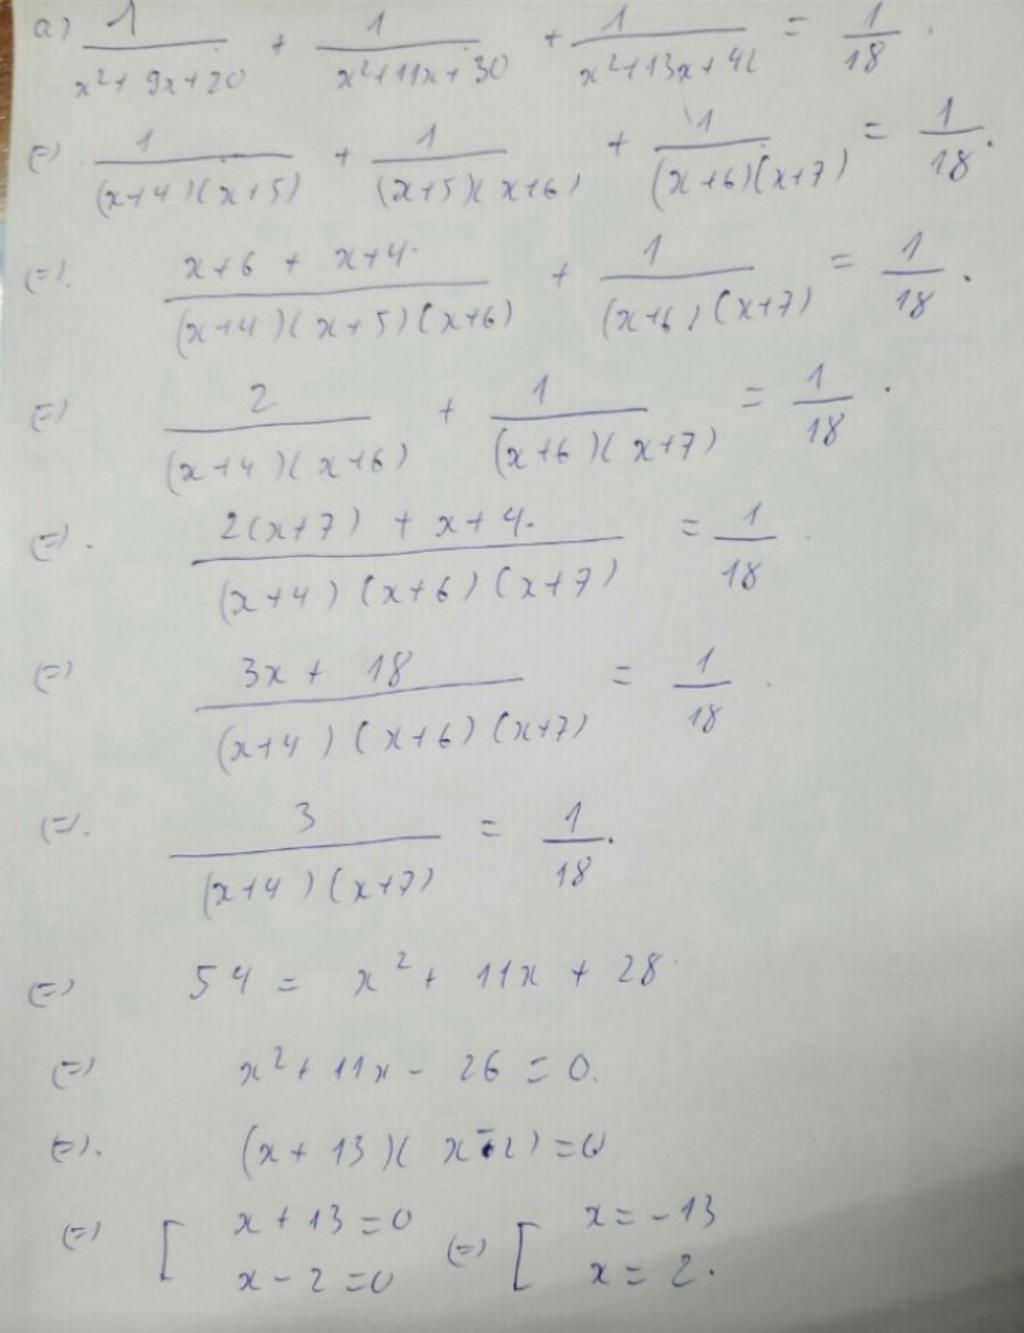 a) 1/(x²+9x+20) + 1/(x²+11x+30) + 1/(x²+13x+42) = 1/18.
(=) 1/((x+4)(x+5)) + 1/((x+5)(x+6)) + 1/((x+6)(x+7)) = 1/18.
(=). (x+6 + x+4)/((x+4)(x+5)(x+6)) + 1/((x+6)(x+7)) = 1/18.
(=) 2/((x+4)(x+6)) + 1/((x+6)(x+7)) = 1/18.
(=). (2(x+7) + x+4)/((x+4)(x+6)(x+7)) = 1/18
(=) (3x + 18)/((x+4)(x+6)(x+7)) = 1/18.
(=). 3/((x+4)(x+7)) = 1/18.
(=) 54 = x² + 11x + 28
(=) x² + 11x - 26 = 0.
(=). (x + 13)(x - 2) = 0
(=) [ x + 13 = 0 (=) [ x = -13
x - 2 = 0 x = 2.